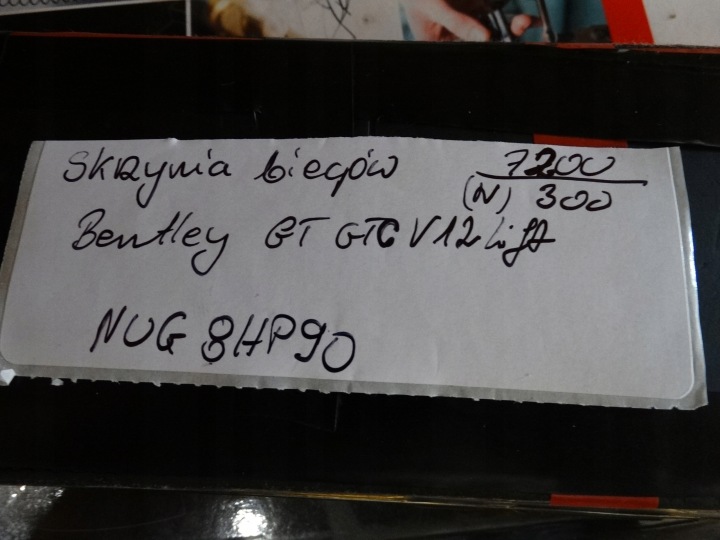 Skrzynia biegów 7200
(N) 300
Bentley GT GTC V12 Lift
NUG 8HP90